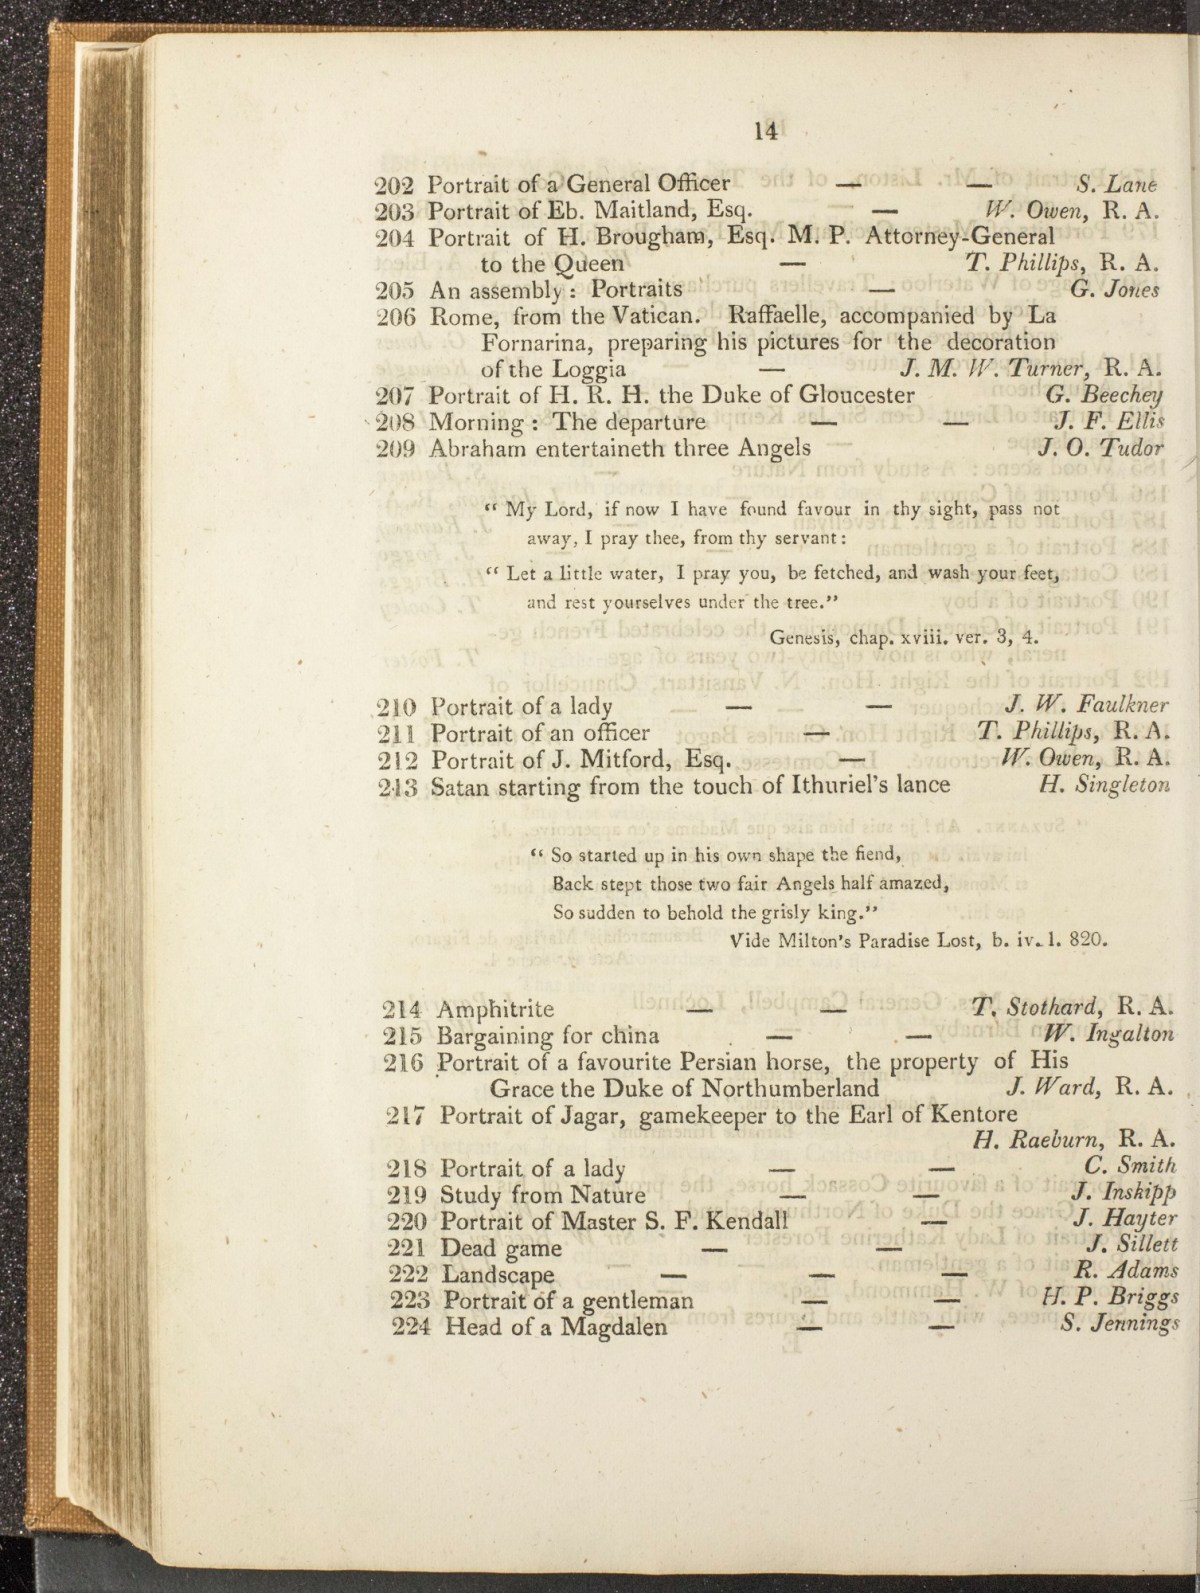 14
202 Portrait of a General Officer — — S. Lane
203 Portrait of Eb. Maitland, Esq. — W. Owen, R. A.
204 Portrait of H. Brougham, Esq. M. P. Attorney-General
to the Queen — T. Phillips, R. A.
205 An assembly : Portraits — G. Jones
206 Rome, from the Vatican. Raffaelle, accompanied by La
Fornarina, preparing his pictures for the decoration
of the Loggia — J. M. W. Turner, R. A.
207 Portrait of H. R. H. the Duke of Gloucester G. Beechey
208 Morning : The departure — — J. F. Ellis
209 Abraham entertaineth three Angels J. O. Tudor
“ My Lord, if now I have found favour in thy sight, pass not
away, I pray thee, from thy servant :
“ Let a little water, I pray you, be fetched, and wash your feet,
and rest yourselves under the tree.”
Genesis, chap. xviii. ver. 3, 4.
210 Portrait of a lady — — J. W. Faulkner
211 Portrait of an officer — T. Phillips, R. A.
212 Portrait of J. Mitford, Esq. — W. Owen, R. A.
213 Satan starting from the touch of Ithuriel's lance H. Singleton
“ So started up in his own shape the fiend,
Back stept those two fair Angels half amazed,
So sudden to behold the grisly king.”
Vide Milton's Paradise Lost, b. iv. l. 820.
214 Amphitrite — — T. Stothard, R. A.
215 Bargaining for china — — W. Ingalton
216 Portrait of a favourite Persian horse, the property of His
Grace the Duke of Northumberland J. Ward, R. A.
217 Portrait of Jagar, gamekeeper to the Earl of Kentore
H. Raeburn, R. A.
218 Portrait of a lady — — C. Smith
219 Study from Nature — — J. Inskipp
220 Portrait of Master S. F. Kendall — J. Hayter
221 Dead game — — J. Sillett
222 Landscape — — — R. Adams
223 Portrait of a gentleman — — H. P. Briggs
224 Head of a Magdalen — — S. Jennings